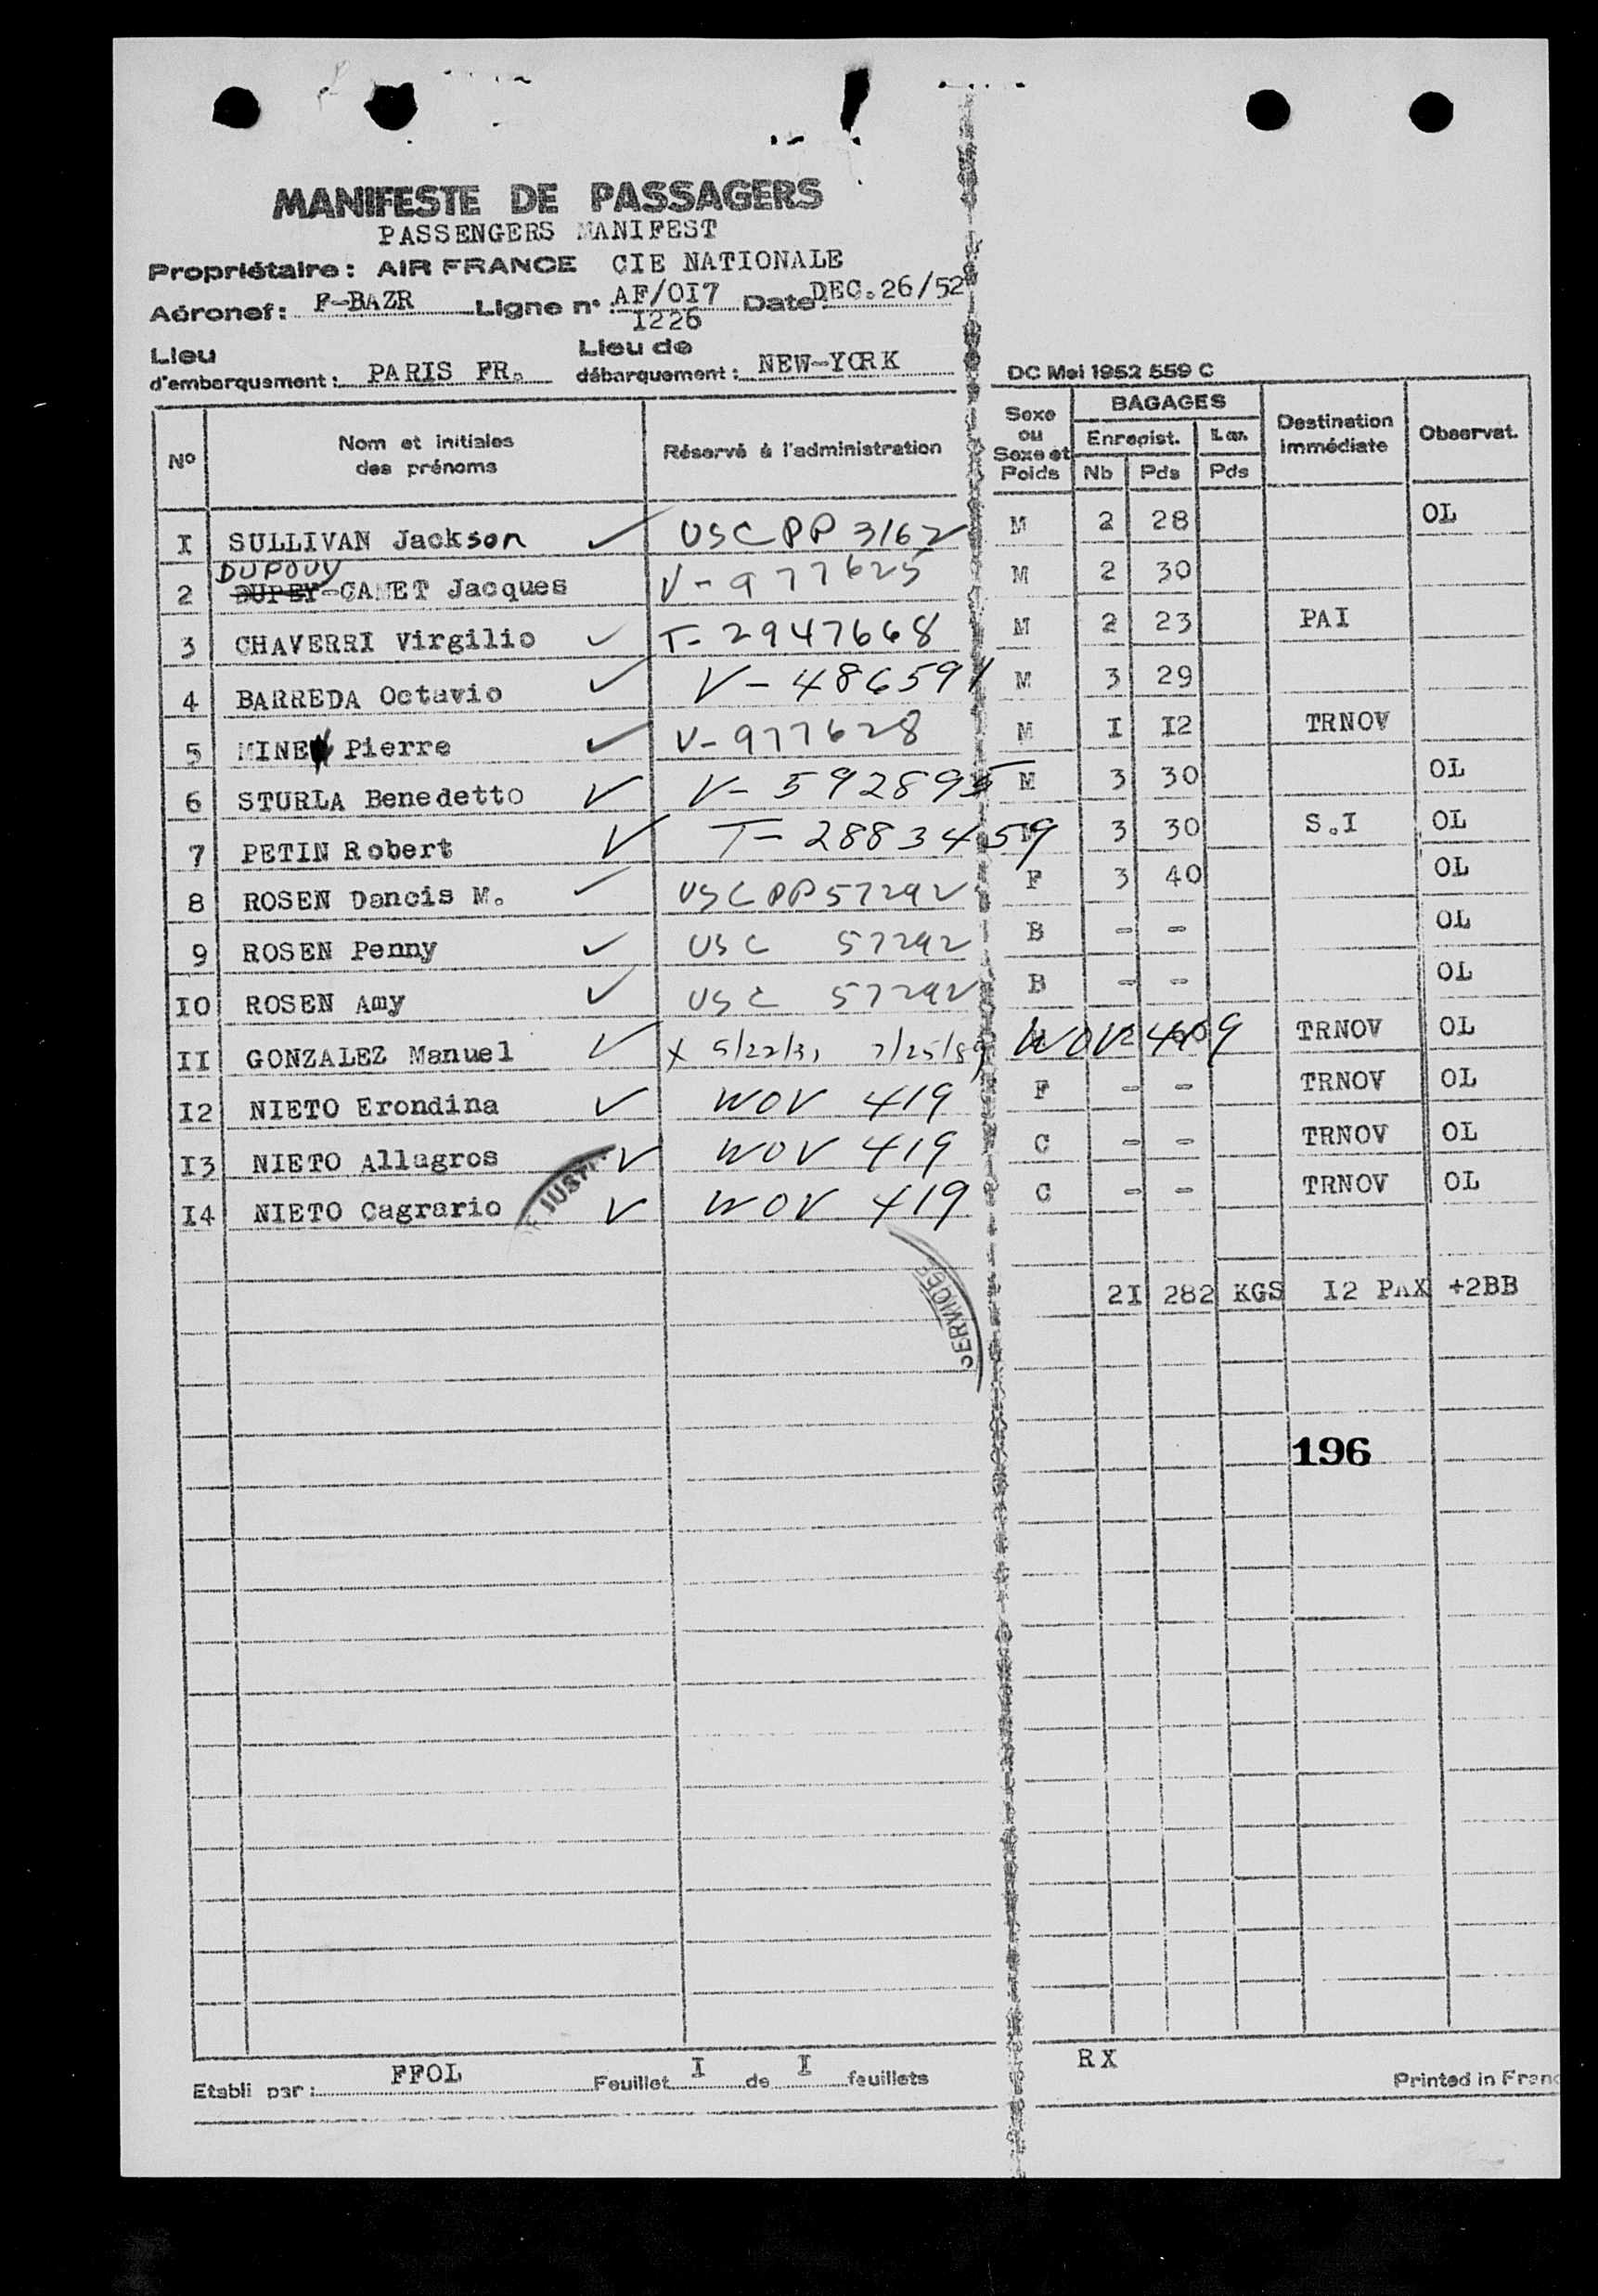 MANIFESTE DE PASSAGERS
PASSENGERS MANIFEST
Propriétaire: AIR FRANCE CIE NATIONALE
Aéronef: F-BAZR Ligne n° AF/OI7 Date DEC.26/52
I226
Lieu d'embarquement: PARIS FR. Lieu de débarquement: NEW-YORK
DC Mai 1952 559 C
N° Nom et initiales des prénoms Réservé à l'administration Sexe ou Sexe et Poids BAGAGES Enregist. Nb Pds Pds Destination immédiate Observat.
I SULLIVAN Jackson ✓ USC PP 3162 M 2 28 OL
DUPOUY
2 DUPEY-CANET Jacques V-977625 M 2 30
3 CHAVERRI Virgilio ✓ T-2947668 M 2 23 PAI
4 BARREDA Octavio ✓ V-486591 M 3 29
5 MINE Pierre ✓ V-977628 M I I2 TRNOV
6 STURLA Benedetto ✓ V-592895 M 3 30 OL
7 PETIN Robert ✓ T-2883459 3 30 S.I OL
8 ROSEN Dancis M. ✓ USC PP 57292 F 3 40 OL
9 ROSEN Penny ✓ USC 57292 B - - OL
IO ROSEN Amy ✓ USC 57292 B - - OL
II GONZALEZ Manuel ✓ X 5/22/31 WOV 419 TRNOV OL
I2 NIETO Erondina ✓ WOV 419 F - - TRNOV OL
I3 NIETO Allagros ✓ WOV 419 C - - TRNOV OL
I4 NIETO Cagrario ✓ WOV 419 C - - TRNOV OL
SERVICE
2I 282 KGS I2 PAX +2BB
196
Etabli par: FFOL Feuillet I de I feuillets RX
Printed in Franc